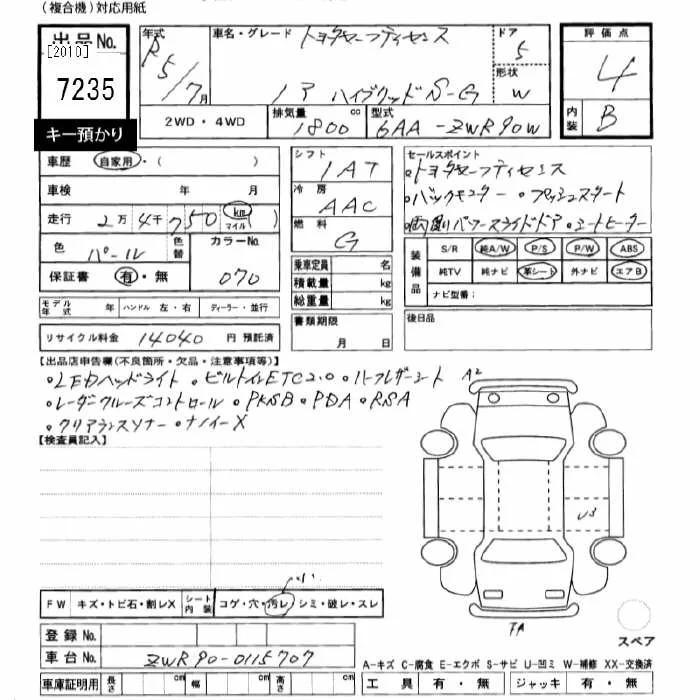 (複合機)対応用紙
出品No. [2010] 7235
キー預かり
年式 R5/7月
車名・グレード トヨタセーフティセンス
ノア ハイブリッド S-G
ドア 5
形状 W
評価点 4
内装 B
2WD・4WD 排気量 1800cc 型式 6AA-ZWR90W
車歴 自家用・( )
車検 年 月
走行 2万4千750 km マイル ( )
色 パール 色替 カラーNo. 070
保証書 有・無
モデル年式 年 ハンドル 左・右 ディーラー・並行
リサイクル料金 14040 円 預託済
シフト IAT
冷房 AAC
燃料 G
乗車定員 名
積載量 kg
総重量 kg
書類期限
月 日
セールスポイント
・トヨタセーフティセンス
・バックモニター ・プッシュスタート
・両側パワースライドドア ・シートヒーター
装備品 S/R 純A/W P/S P/W ABS
純TV 純ナビ 革シート 外ナビ エアB
ナビ型番:
後日品
【出品店申告欄(不良箇所・欠品・注意事項等)】
・LEDヘッドライト ・ビルトインETC2.0 ・ハーフレザーシート
・レーダークルーズコントロール ・PKSB ・PDA ・RSA
・クリアランスソナー ・ナノイーX
【検査員記入】
A2
U3
FW キズ・トビ石・割レX シート内装 コゲ・穴・汚レ・シミ・破レ・スレ
登録No.
車台No. ZWR90-0115707
車庫証明用 長さ cm 幅 cm 高さ cm
スペア
A-キズ C-腐食 E-エクボ S-サビ U-凹ミ W-補修 XX-交換済
工具 有・無 ジャッキ 有・無